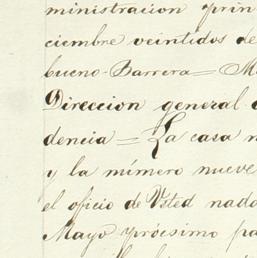 ministracion prin
ciembre veintidos de
bueno-Barrera= M
Direccion general
dencia= La casa
y la número nueve
el oficio de Usted nado
Mayo prócsimo pa